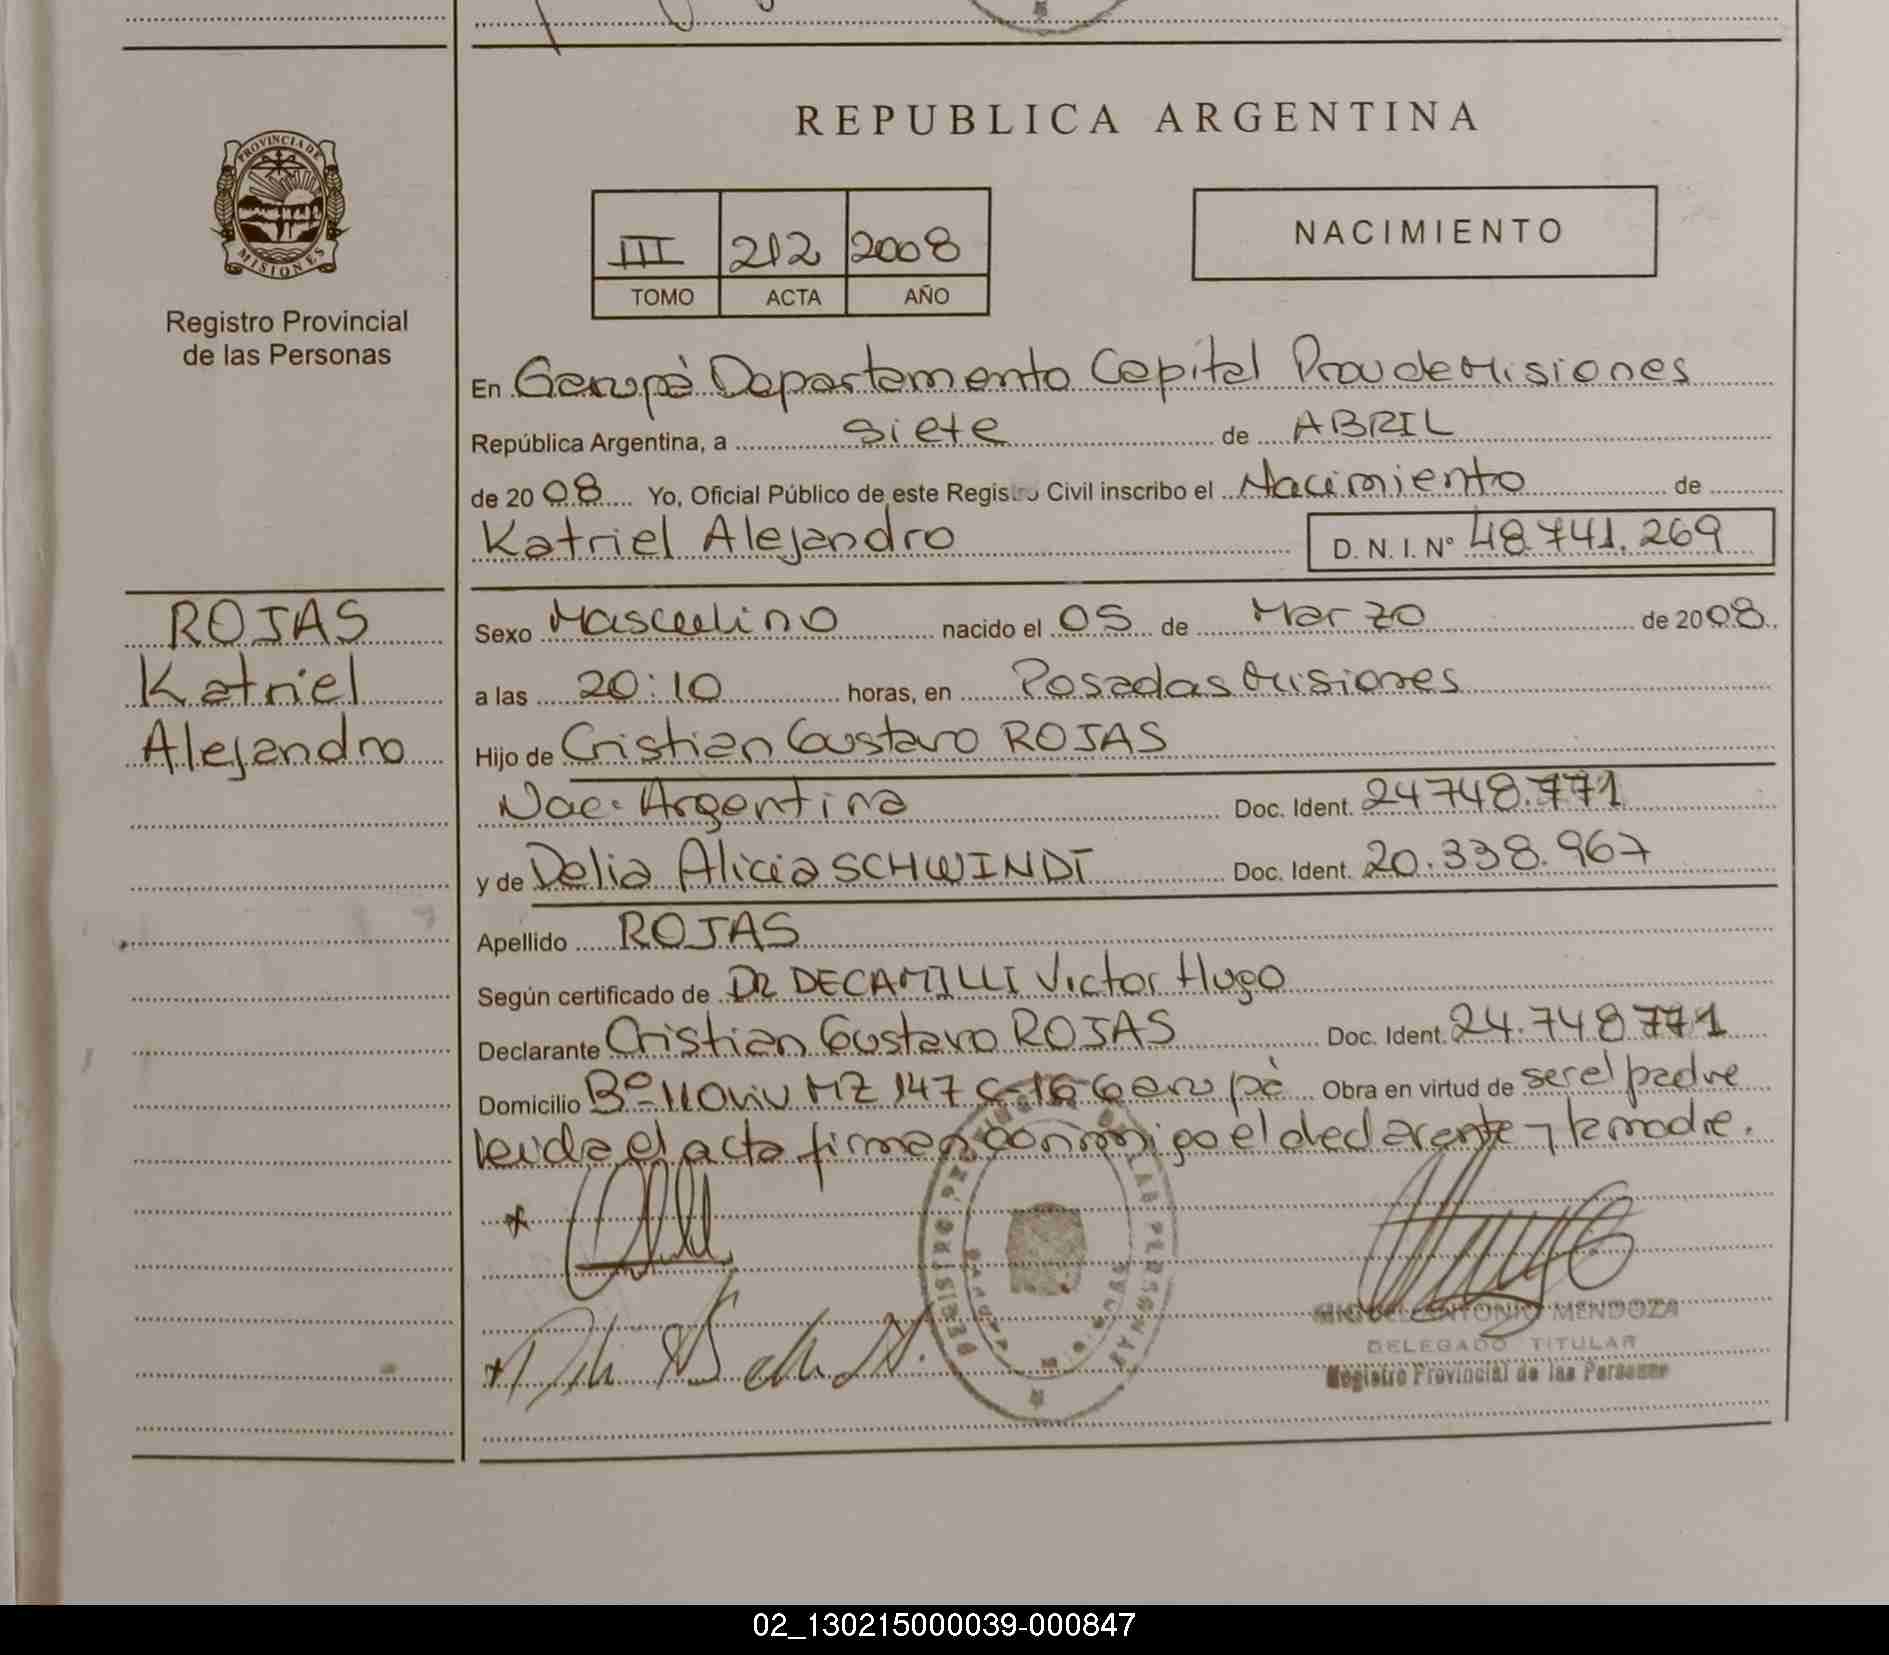 PROVINCIA DE
MISIONES
Registro Provincial
de las Personas
ROJAS
Katriel
Alejandro
REPUBLICA ARGENTINA
III 212 2008
TOMO ACTA AÑO
NACIMIENTO
En Garupá Departamento Capital Prov de Misiones
República Argentina, a siete de ABRIL
de 2008 Yo, Oficial Público de este Registro Civil inscribo el Nacimiento de
Katriel Alejandro D. N. I. N° 48.741.269
Sexo Masculino nacido el 05 de Marzo de 2008
a las 20:10 horas, en Posadas Misiones
Hijo de Cristian Gustavo ROJAS
Nac. Argentina Doc. Ident. 24748.771
y de Delia Alicia SCHWINDT Doc. Ident. 20.338.967
Apellido ROJAS
Según certificado de DR DECAMILLI Victor Hugo
Declarante Cristian Gustavo ROJAS Doc. Ident. 24.748771
Domicilio Bº 110 Viv MZ 147 C-16 Garupá Obra en virtud de ser el padre
leida el acta firman conmigo el declarante y la madre.
MIGUEL ANTONIO MENDOZA
DELEGADO TITULAR
Registro Provincial de las Personas
02_130215000039-000847